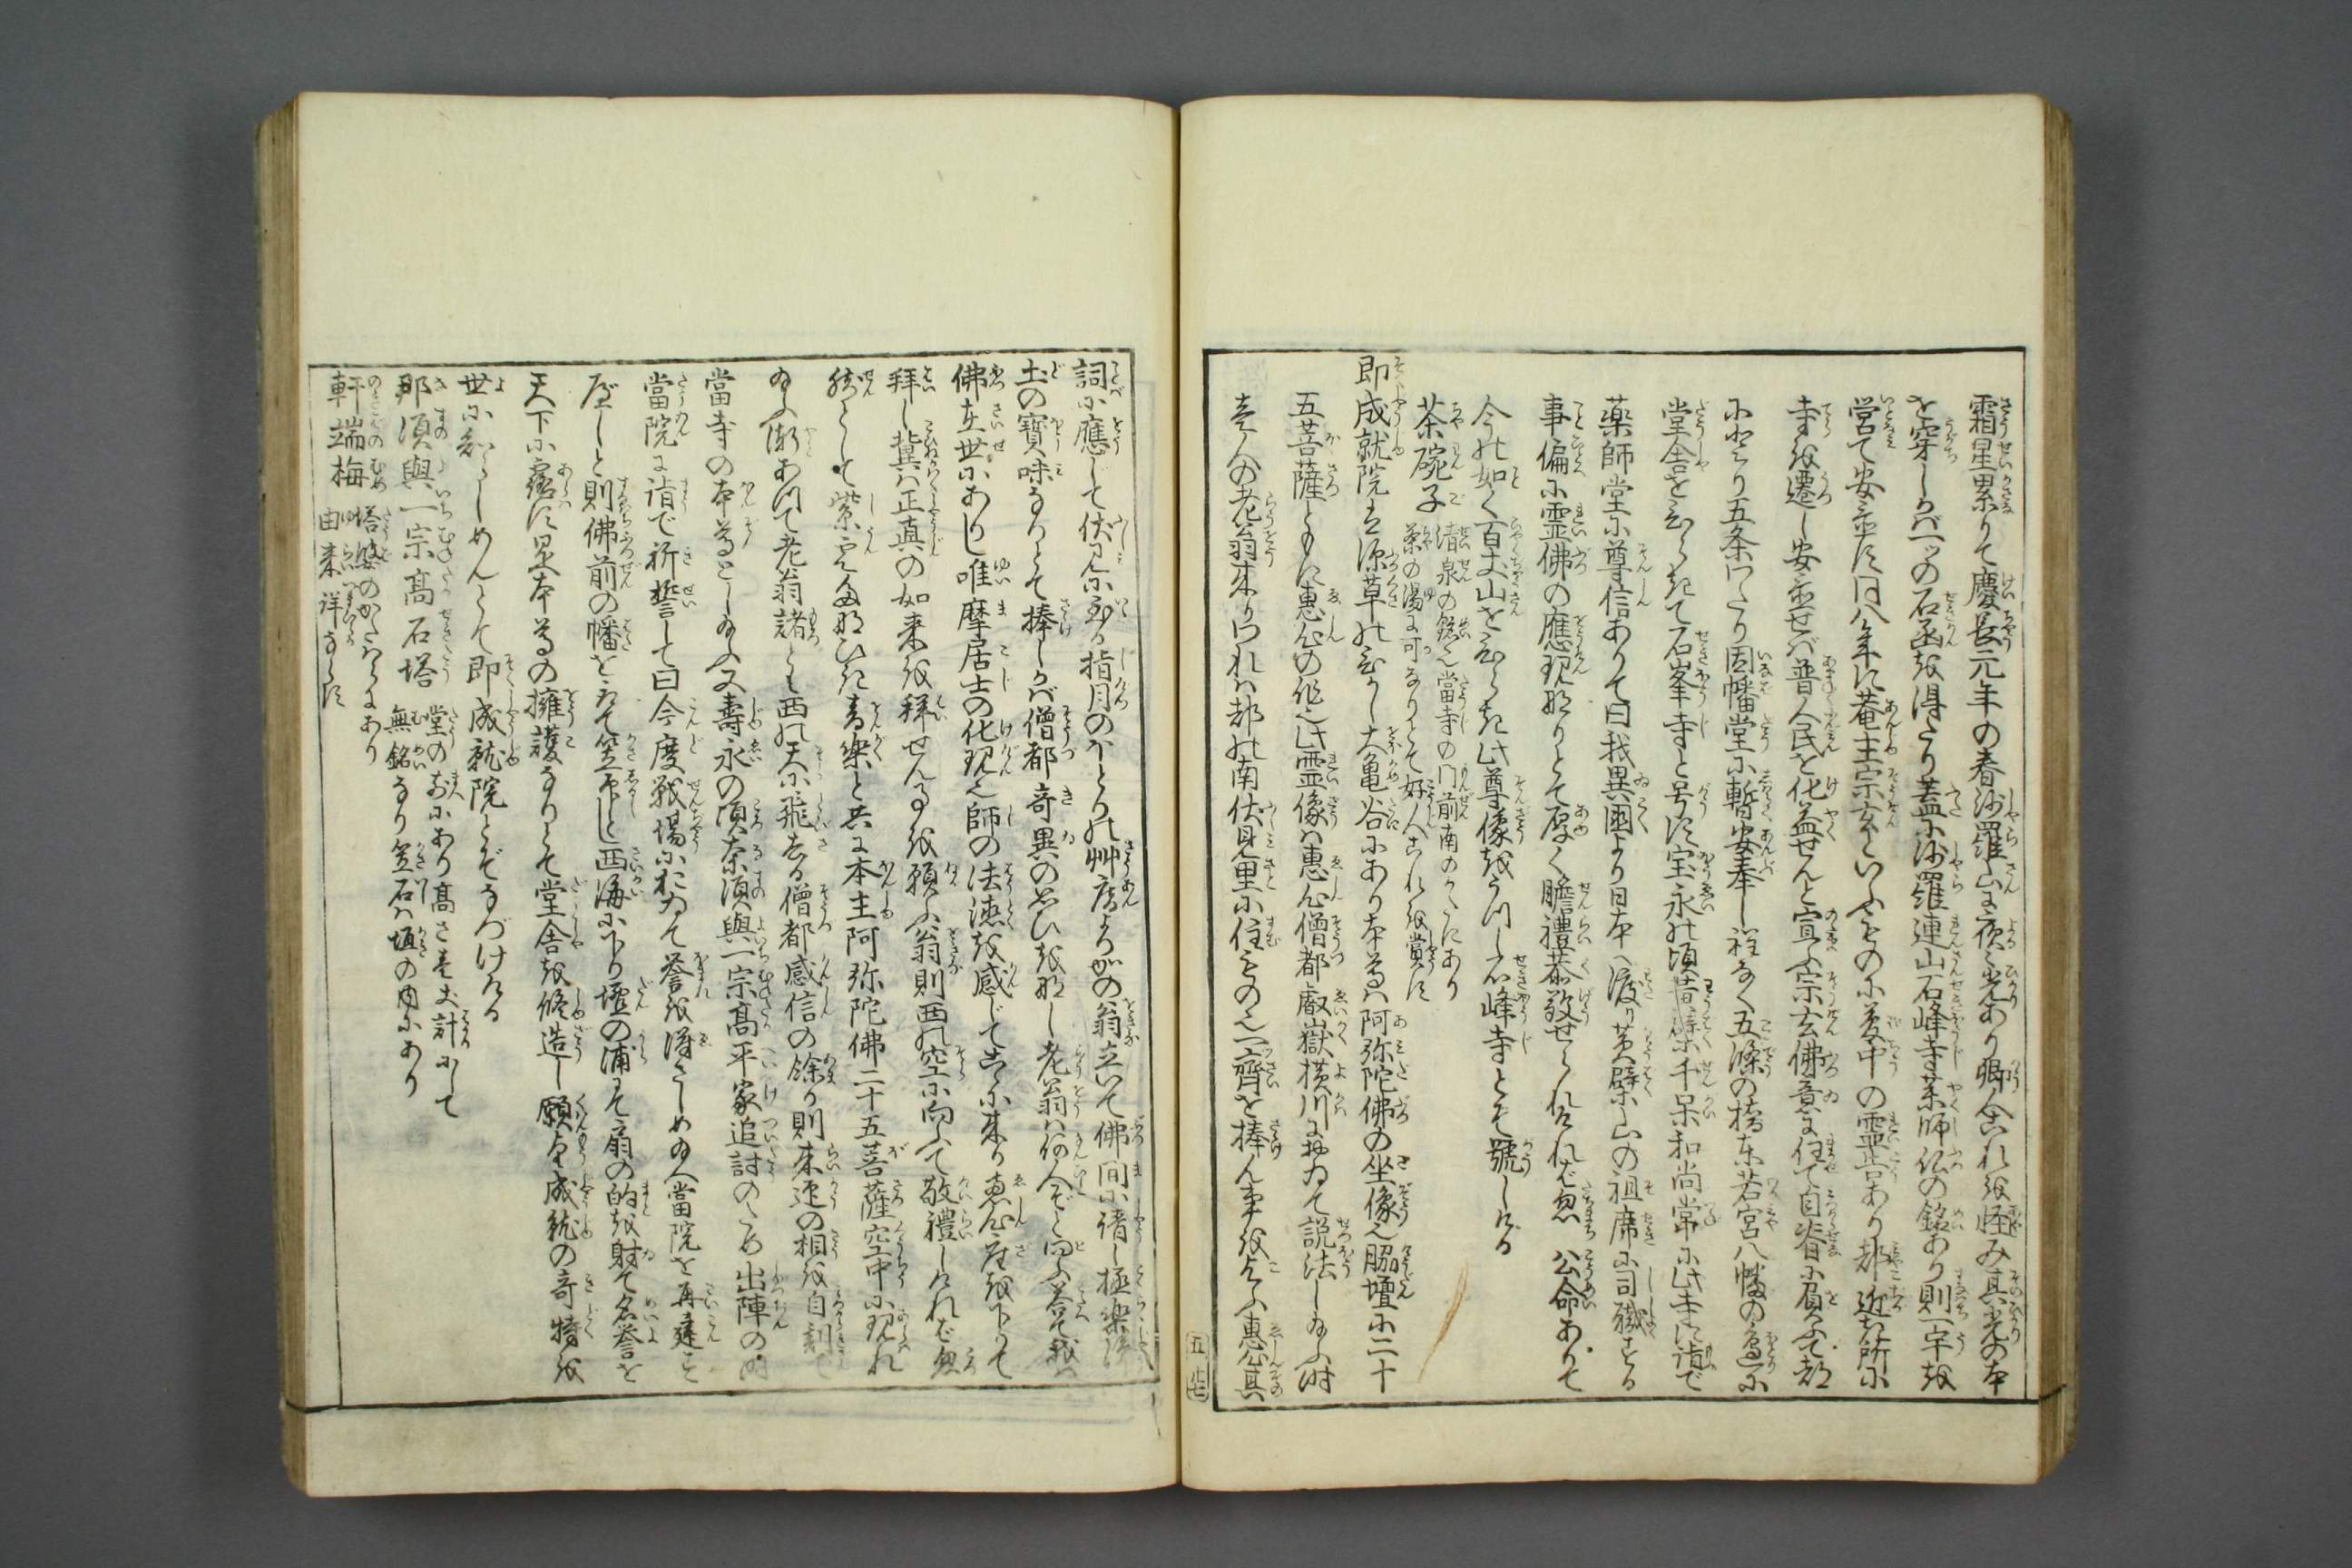 霜星累りて慶長元年の春沙羅山に夜々光あり郷人これを怪み其光の本
を穿しかバ一つの石函を得たり蓋に沙羅連山石峰寺薬師仏の銘あり則一宇を
営て安置す同八年に菴主宗玄といふものに夢中の靈告あり都近き所に
寺を遷し安置せバ普人民を化益せんと宣ふ宗玄佛意に任て自脊に負ふて都
に上り五条わたり因幡堂に暫安奉し程なく五條の橋東若宮八幡の邊に
堂舎をひらきて石峯寺と号す宝永の頃黄檗千呆和尚常に此寺に詣で
薬師堂に尊信ありて曰我異國より日本へ渡り黄檗山の祖席に司職する
事偏に霊佛の應現なりとて厚く瞻禮恭敬せられけれバ忽公命ありて
今の如く百丈山をひらき此尊像をうつし石峰寺とぞ號しける
茶碗子 清泉の銘也當寺の門前南のかたにあり
茶の湯に可なりとて好人これを賞す
即成就院は深草の東大亀谷にあり本尊ハ阿弥陀佛の坐像也脇壇に二十
五菩薩ともに惠心の作也此霊像ハ惠心僧都叡嶽横川に於ゐて説法し給ふ時
壹人の老翁来りわれハ都の南伏見里に住もの也一齋を捧ん事を乞ふ惠心其
詞に應じて伏見に到る指月のほとりの艸庵よりかの翁立いて佛間に請し極樂浄
土の寶味なりとて捧しかバ僧都奇異の思ひを起し老翁ハ何人ぞと問ふ答て我ハ
佛在世にありし唯摩居士の化現也師の法徳を感じてこゝに来り惠心座を下りて
拜し冀ハ正真の如来を拜せん事を願ふ翁則西の空に向ふて敬禮しけれバ忽
然として紫雲たなひき音樂と共に本主阿弥陀佛二十五菩薩空中に現れ
給ふ漸あつて老翁諸とも西の天に飛去る僧都感信の餘り則来迎の相を自刻て
當寺の本尊とし給ふ又壽永の頃奈須與一宗髙平家追討のため出陣の時
當院に詣で祈誓して曰今度戦塲において誉を得さしめ給へ當院を再建す
べしと則佛前の幡をとりて笠印とし西海に下り壇の浦にて扇の的を射て名誉を
天下に露す是本尊の擁護なりとて堂舎を修造し願成就の奇特を
世に知らしめんとて即成就院とぞなづけける
那須與一宗髙石塔 堂の前にあり髙さ壹丈計にして
無銘なり笠石ハ垣の内にあり
軒端梅 塔婆のかたハらにあり
由来詳ならず
五 廿七